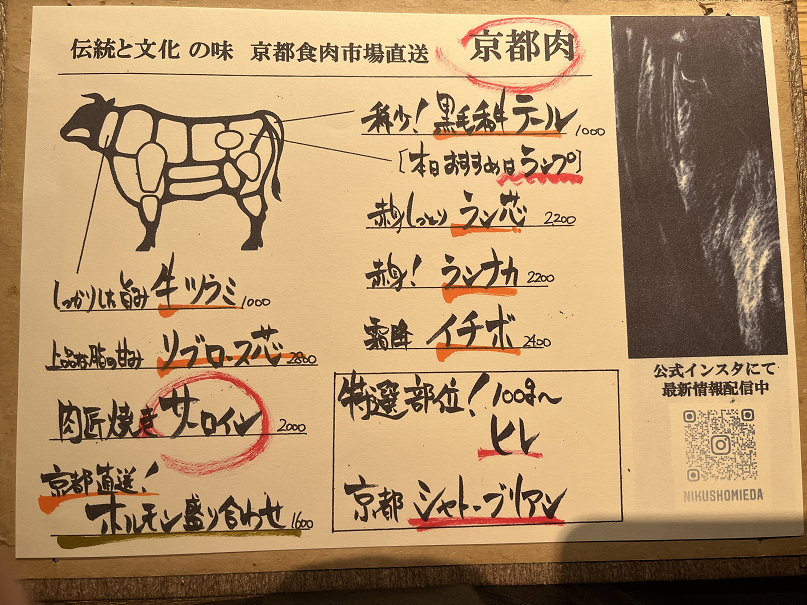 伝統と文化 の味 京都食肉市場直送 京都肉
稀少！黒毛和牛テール 1000
[本日おすすめはランプ]
赤身しっとり ラン芯 2200
赤身！ランナカ 2200
霜降 イチボ 2400
しっかりした旨み 牛ツラミ 1000
上品な脂の甘み リブロース芯 2800
肉匠焼き サーロイン 2000
京都直送！
ホルモン盛り合わせ 1600
特選部位！100g〜
ヒレ
京都 シャトーブリアン
公式インスタにて
最新情報配信中
NIKUSHOMIEDA